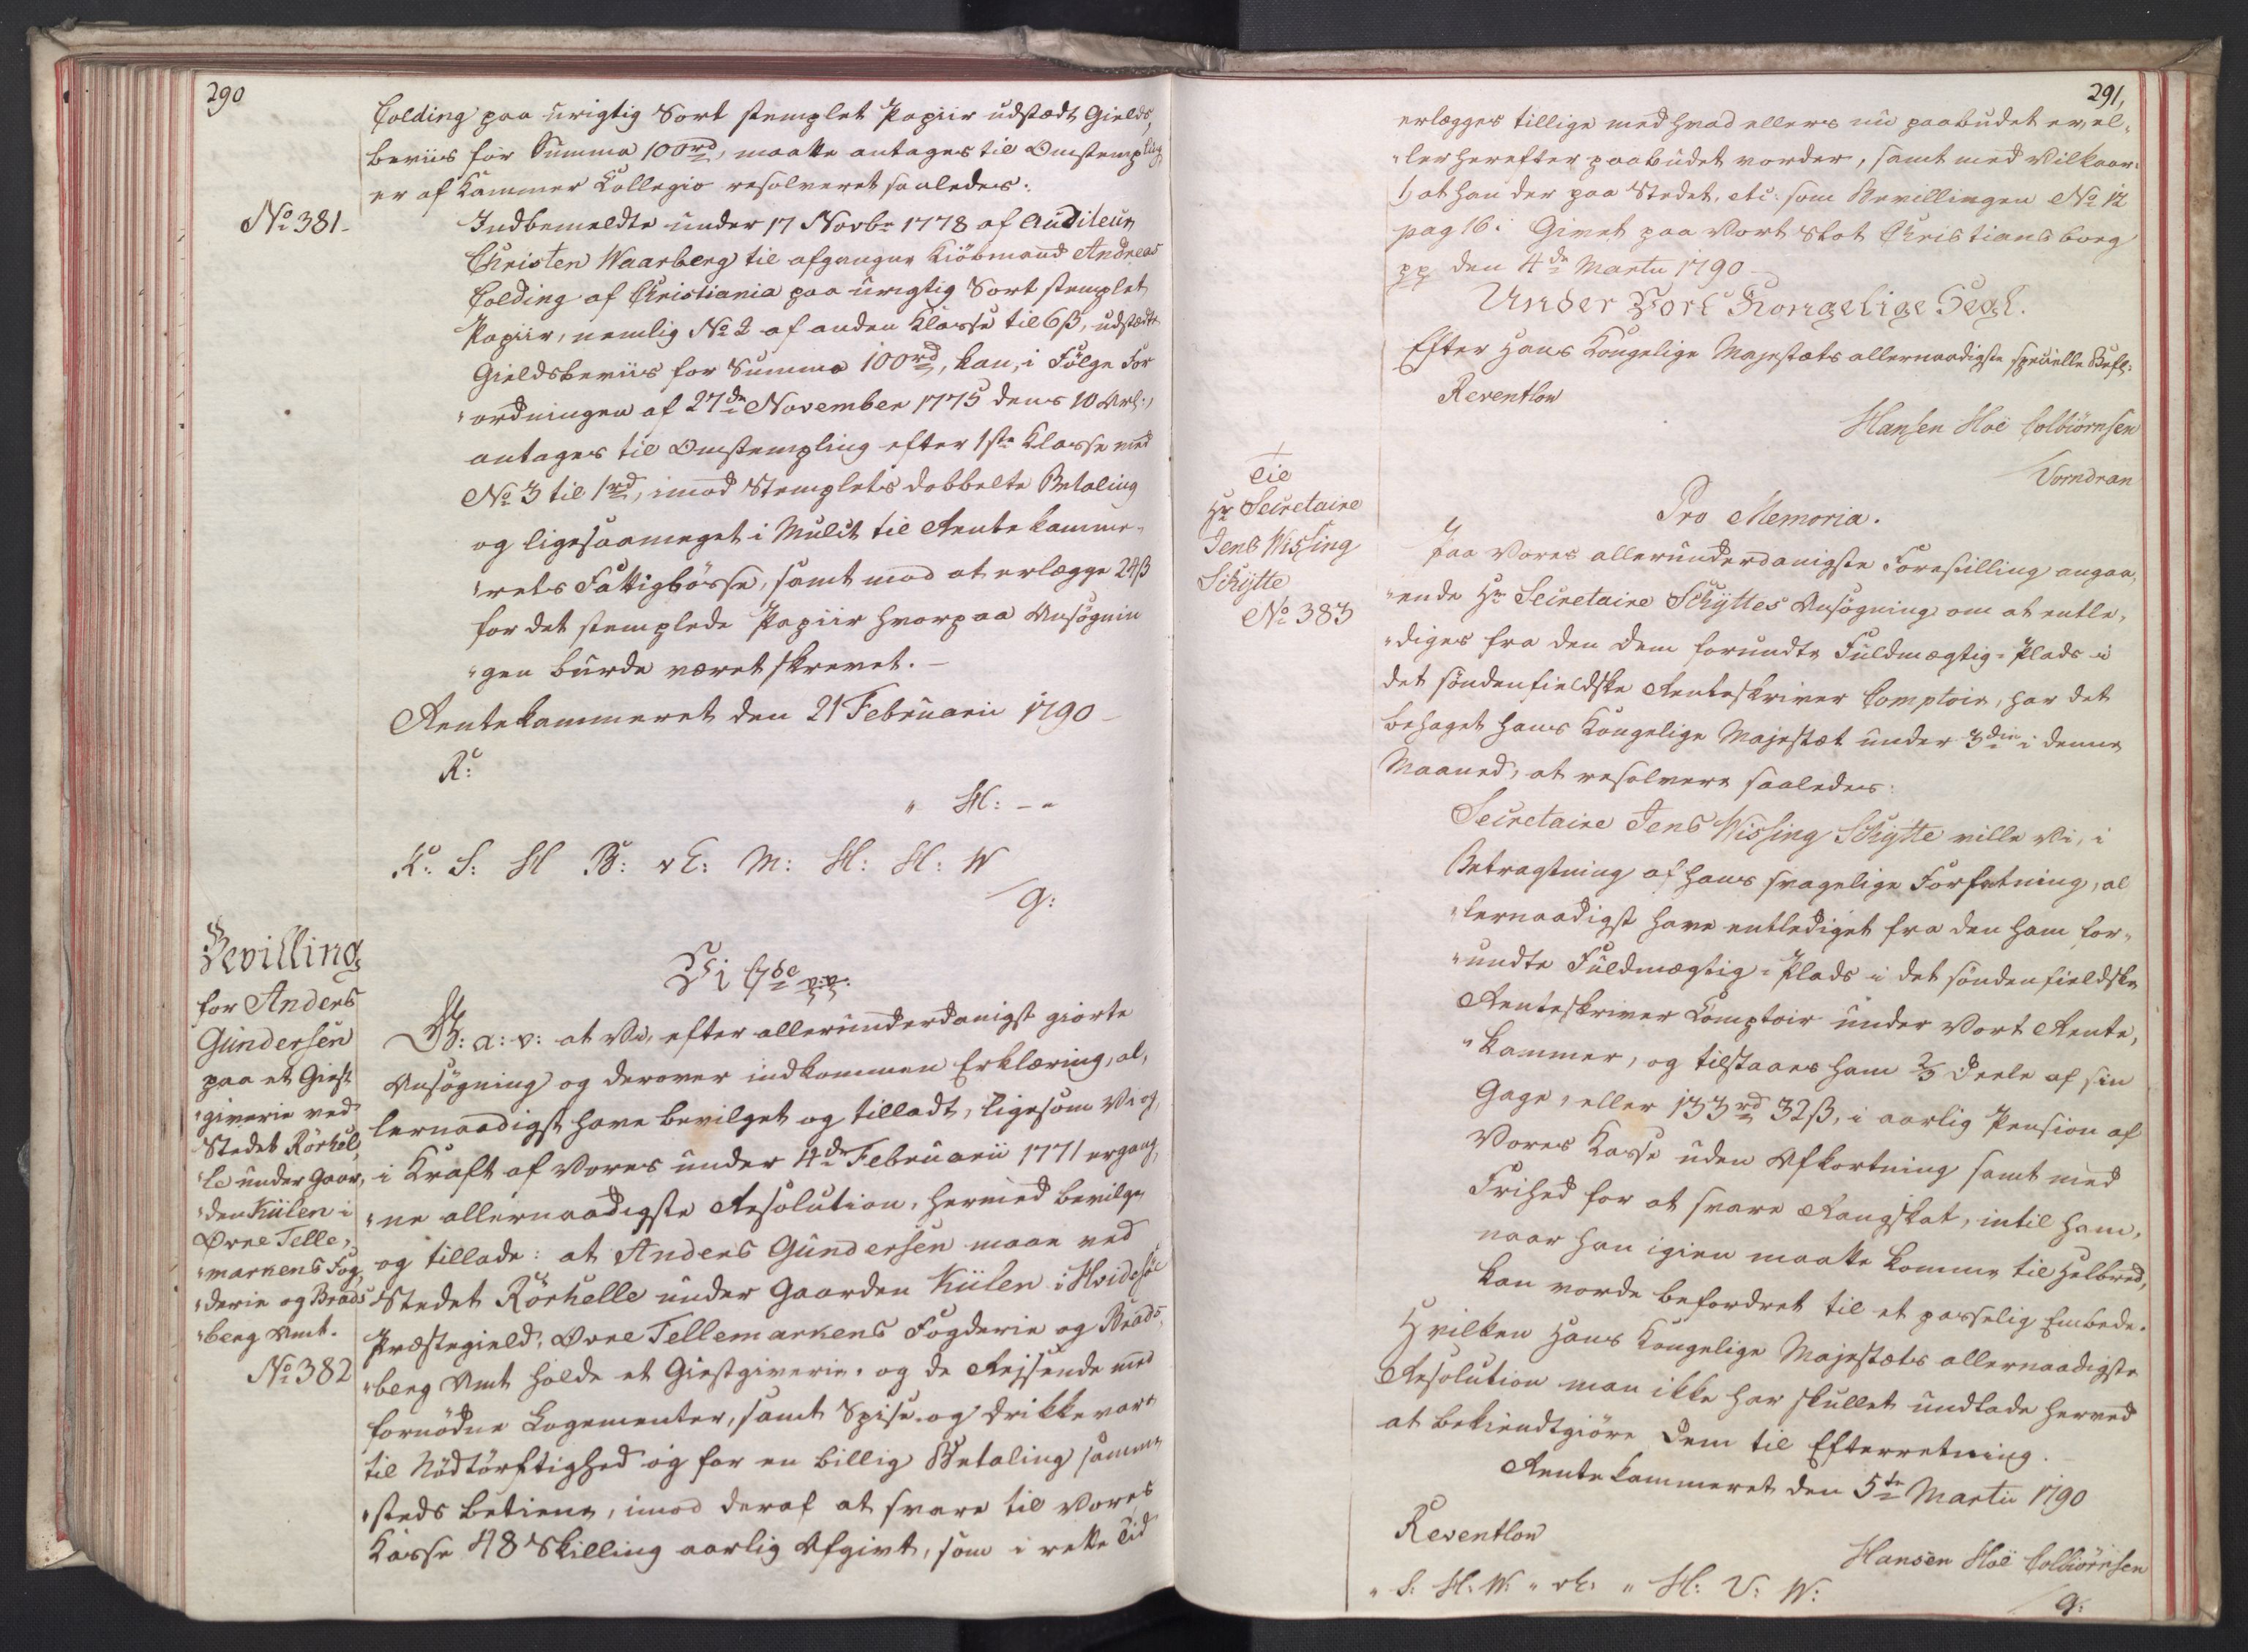 290
Colding paa urigtig Sort stemplet Papiir udstædt Gields,
beviis for Summa 100rd, maatte antages til Omstempling
er af Kammer Collegio resolveret saaledes:
No 381.
Indbemeldte under 17 Novbr 1778 af Auditeur
Christen Waarberg til afgangne Kiöbmand Andreas
Colding af Christiania paa urigtig Sort stemplet
Papiir, nemlig No 2 af anden Klasse til 6ß, udstædte
Gieldsbeviis for Summa 100rd, kan, i Fölge For
"ordningen af 27de November 1775 dens 10 Art:,
antages til Omstempling efter 1ste Klasse med
No 3 til 1rd, imod Stemplets dobbelte Betaling
og ligesaameget i Mulct til Rentekamme-
"rets Fattigbösse, samt mod at erlægge 24ß
for det stemplede Papiir hvorpaa Ansögnin
"gen burde været skrevet. –
Rentekammeret den 21 Februarii 1790 –
R:
" H: – "
K: S: H B: v E: M: H: H: W
G:
Bevilling
for Anders
Gundersen
paa et Giest
"giverie ved
Stedet Rörhel,
"le under Gaar,
"den Kiilen i
Övre Telle,
"markens Fog,
"derie og Brads
"berg Amt.
No 382
Vi C7de p:p:
G: a: v: at Vi, efter allerunderdanigst giorte
Ansögning og derover indkommen Erklæring, al,
lernaadigst have bevilget og tilladt, ligesom Vi og,
i Kraft af Vores under 4de Februarii 1771 ergang,
"ne allernaadigste Resolution, hermed bevilge
og tillade: at Anders Gundersen maae ved
Stedet Rörhelle under Gaarden Kiilen i Hvidesöe
Præstegield, Övre Tellemarkens Fogderie og Brads,
"berg Amt holde et Giestgiverie, og de Rejsende med
fornödne Logementer, samt Spise- og drikkevare
til Nödtörftighed og for en billig Betaling samme
"steds betiene, imod deraf at svare til Vores
Kasse 48 Skilling aarlig Afgivt, som i rette Tid
291,
erlægges tillige med hvad ellers nu paabudet er, el,
"ler herefter paabudet vorder, samt med Vilkaar:
1, at han der paa Stedet, etc: som Bevillingen No 12
pag 16. Givet paa Vort Slot Christiansborg
pp den 4de Martii 1790 –
Under Vort Kongelige Segl.
Efter Hans Kongelige Majestæts allernaadigste specielle Befl:
Reventlow
Hansen Hoë Colbiörnsen
Vorndran
Til
Hr Secretaire
Jens Wissing
Schytte
No 383
Pro Memoria.
Paa Vores allerunderdanigste Forestilling angaa,
"ende Hr Secretaire Schyttes Ansögning om at entle,
"diges fra den Dem forundte Fuldmægtig-Plads i
det söndenfieldske Renteskriver Comptoir, har det
behaget Hans Kongelige Majestæt under 3die i denne
Maaned, at resolvere saaledes:
Secretaire Jens Wissing Schytte ville Vi, i
Betragtning af hans svagelige Forfatning, al
"lernaadigst have entlediget fra den ham for-
"undte Fuldmægtig-Plads i det söndenfieldske
Renteskriver Comptoir under Vort Rente,
"kammer, og tilstaaes ham 2/3 Deele af sin
Gage, eller 133rd 32ß, i aarlig Pension af
Vores Kasse uden Afkortning samt med
Frihed for at svare Rangskat, intil ham,
naar han igien maatte komme til Helbred,
kan vorde befordret til et passelig Embede.
Hvilken Hans Kongelige Majestæts allernaadigste
Resolution man ikke har skullet undlade herved
at bekiendtgiöre Dem til Efterretning.
Rentekammeret den 5te Martii 1790
Reventlow
Hansen Hoë Colbiörnsen
" S: H: W: " vE: " H: V: W:
G: